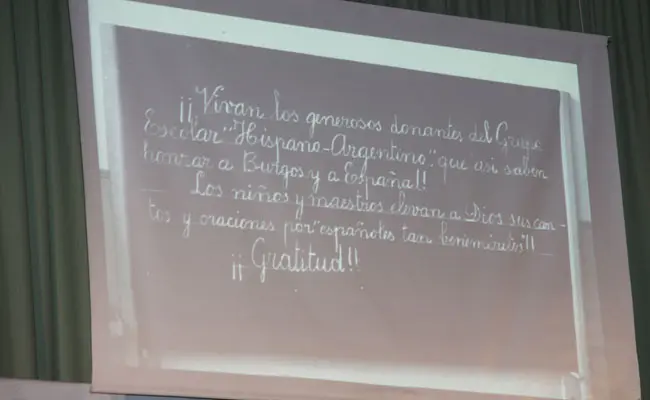 ¡¡Vivan los generosos donantes del Grupo
Escolar "Hispano-Argentino", que asi saben
honrar a Burgos y a España!!
Los niños y maestros elevan a Dios sus can-
tos y oraciones por españoles tan beneméritos!!
¡¡Gratitud!!